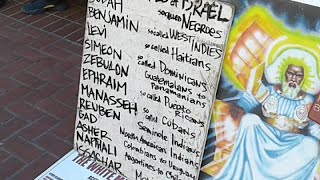 JUDAH OF ISRAEL
so called NEGROES
BENJAMIN so called WEST INDIES
LEVI so called Haitians
SIMEON so called DOMINICANS
ZEBULON Guatemalans to Panamanians
EPHRAIM so called Puerto Ricans
MANASSEH so called CUBANS
REUBEN Seminole Indians
GAD North American Indians
ASHER Colombians to Uruguay
NAPHTALI Argentina to Chile
ISSACHAR